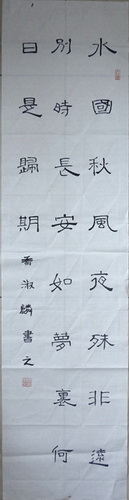 水國秋風夜殊非遠
別時長安如夢裏何
日是歸期
淑麟書之